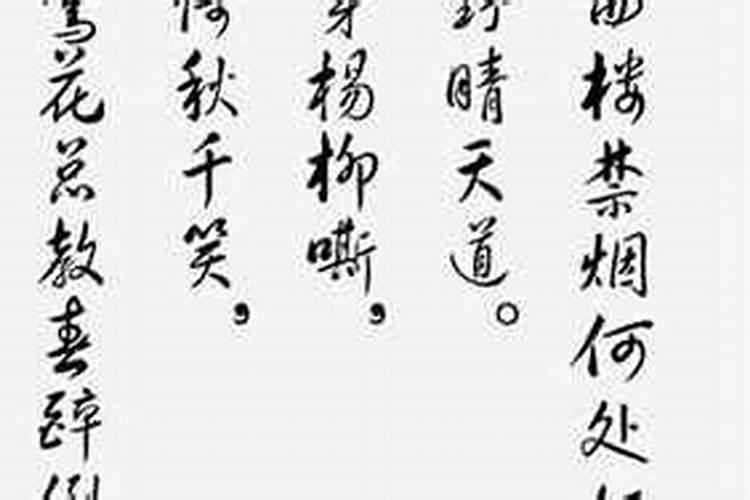 楼禁烟何处
晴天道。
杨柳嘶，
秋千笑，
莺花总教春醉